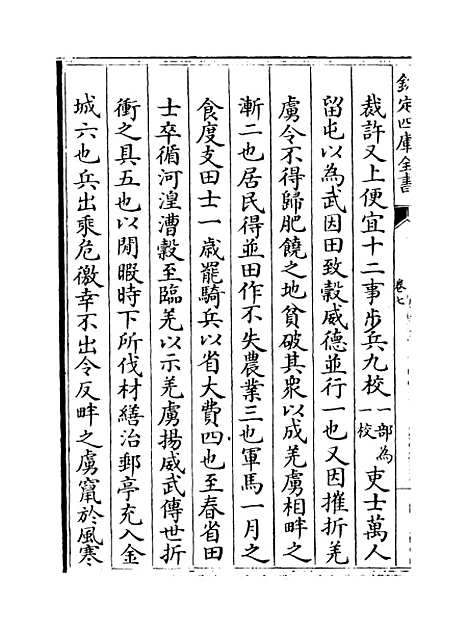 欽定四庫全書
卷七
裁許又上便宜十二事歩兵九校一部為一校吏士萬人
留屯以為武因田致穀威德並行一也又因摧折羌
虜令不得歸肥饒之地貧破其衆以成羌虜相畔之
漸二也居民得並田作不失農業三也軍馬一月之
食度支田士一歳罷騎兵以省大費四也至春省田
士卒循河湟漕穀至臨羌以示羌虜揚威武傳世折
衝之具五也以閒暇時下所伐材繕治郵亭充入金
城六也兵出乘危徼幸不出令反畔之虜竄於風寒